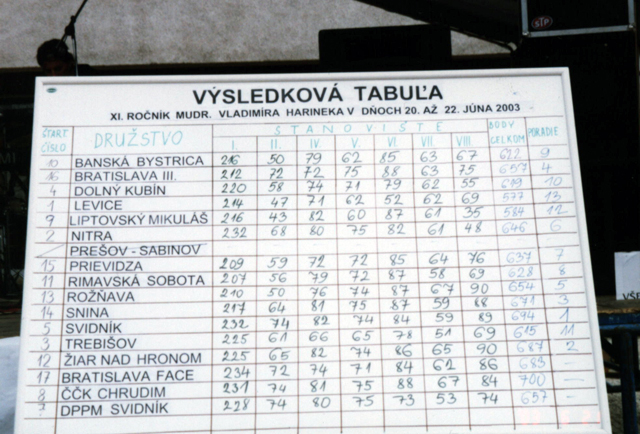 STP
VÝSLEDKOVÁ TABUĽA
XI. ROČNÍK MUDR. VLADIMÍRA HARINEKA V DŇOCH 20. AŽ 22. JÚNA 2003
ŠTART. ČÍSLO DRUŽSTVO STANOVIŠTE BODY CELKOM PORADIE
I. II. IV V. VI VII. VIII.
10 BANSKÁ BYSTRICA 216 50 79 62 85 63 67 622 9
16 BRATISLAVA III. 212 72 72 75 88 63 75 657 4
4 DOLNÝ KUBÍN 220 58 74 71 79 62 55 619 10
1 LEVICE 214 47 71 62 52 62 69 577 13
9 LIPTOVSKÝ MIKULÁŠ 216 43 82 60 87 61 35 584 12
2 NITRA 232 68 80 75 82 61 48 646 6
PREŠOV - SABINOV — — — — — — — — —
15 PRIEVIDZA 209 59 72 72 85 64 76 637 7
11 RIMAVSKÁ SOBOTA 207 56 79 72 87 58 69 628 8
13 ROŽŇAVA 210 50 76 74 87 67 90 654 5
14 SNINA 217 64 81 75 87 59 88 671 3
5 SVIDNÍK 232 74 82 74 84 59 89 694 1
3 TREBIŠOV 225 61 66 65 78 51 69 615 11
12 ŽIAR NAD HRONOM 225 65 82 74 86 65 90 687 2
17 BRATISLAVA FACE 234 72 74 71 84 62 86 683 —
8 ČČK CHRUDIM 231 74 81 75 88 67 84 700 —
7 DPPM SVIDNÍK 228 74 80 75 73 53 74 657 —